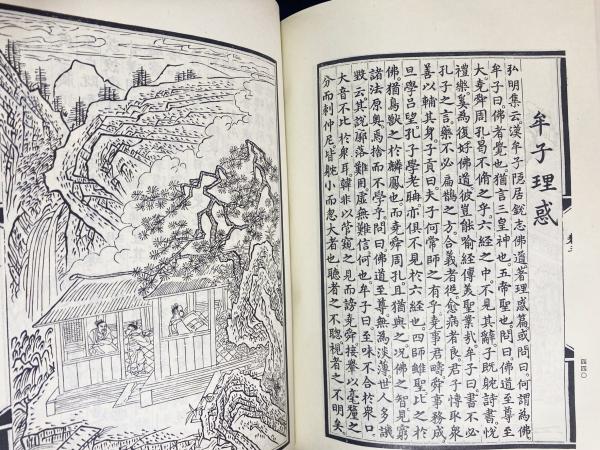 牟子理惑
弘明集云漢牟子隱居銳志佛道著理惑篇或問曰何謂為佛
牟子曰佛者覺也猶言三皇神也五帝聖也問曰佛道至尊至
大堯舜周孔曷不脩之乎六經之中不見其辭子既躭詩書悅
禮樂奚為復好佛道彼豈能喻經傳美聖業哉牟子曰書不必
孔子之言藥不必扁鵲之方合義者從愈病者良君子博取眾
善以輔其身子貢曰夫子何常師之有乎堯事君疇舜事務成
旦學呂望孔子學老聃亦俱不見於六經也四師雖聖比之於
佛猶鳥獸之於麟鳳也而堯舜周孔且猶與之況佛之智見窮
諸法原奧焉捨而不學乎問曰佛道至尊無為淡薄世人多譏
毀云其說廓落難用虛無難信何也牟子曰至味不合於眾口
大音不比於眾耳韓非以管窺之見而謗堯舜接輿以毫釐之
分而刺仲尼皆躭小而忽大者也聽者之不聰視者之不明矣
卷三
四四〇